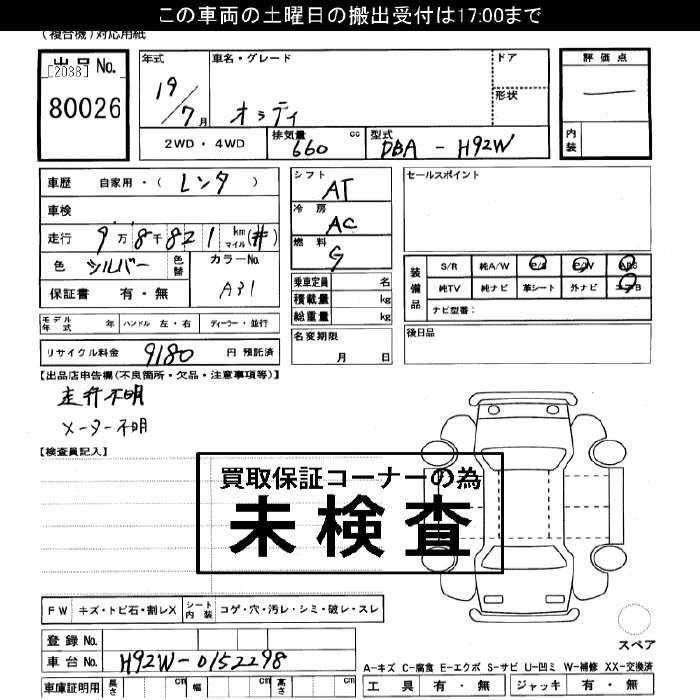 この車両の土曜日の搬出受付は17:00まで
（複合機）対応用紙
出品No.
[2038]
80026
年式
19/7月
車名・グレード
オッティ
ドア
形状
評価点
―
内装
2WD・4WD
排気量 660 cc
型式 DBA-H92W
車歴 自家用・（レンタ）
車検
走行 9万8千821 km マイル(#)
色 シルバー 色替
カラーNo. A31
保証書 有・無
シフト AT
冷房 AC
燃料 G
乗車定員 名
積載量 kg
総重量 kg
セールスポイント
装備品
S/R 純A/W P/S P/W ABS
純TV 純ナビ 革シート 外ナビ エアB
ナビ型番:
モデル年式 年 ハンドル 左・右 ディーラー・並行
リサイクル料金 9180 円 預託済
名変期限
月 日
後日品
【出品店申告欄(不良箇所・欠品・注意事項等)】
走行不明
メーター不明
【検査員記入】
買取保証コーナーの為
未検査
FW キズ・トビ石・割レX シート内装 コゲ・穴・汚レ・シミ・破レ・スレ
登録No.
車台No. H92W-0152298
車庫証明用 長さ cm 幅 cm 高さ cm
スペア
A-キズ C-腐食 E-エクボ S-サビ U-凹ミ W-補修 XX-交換済
工具 有・無 ジャッキ 有・無